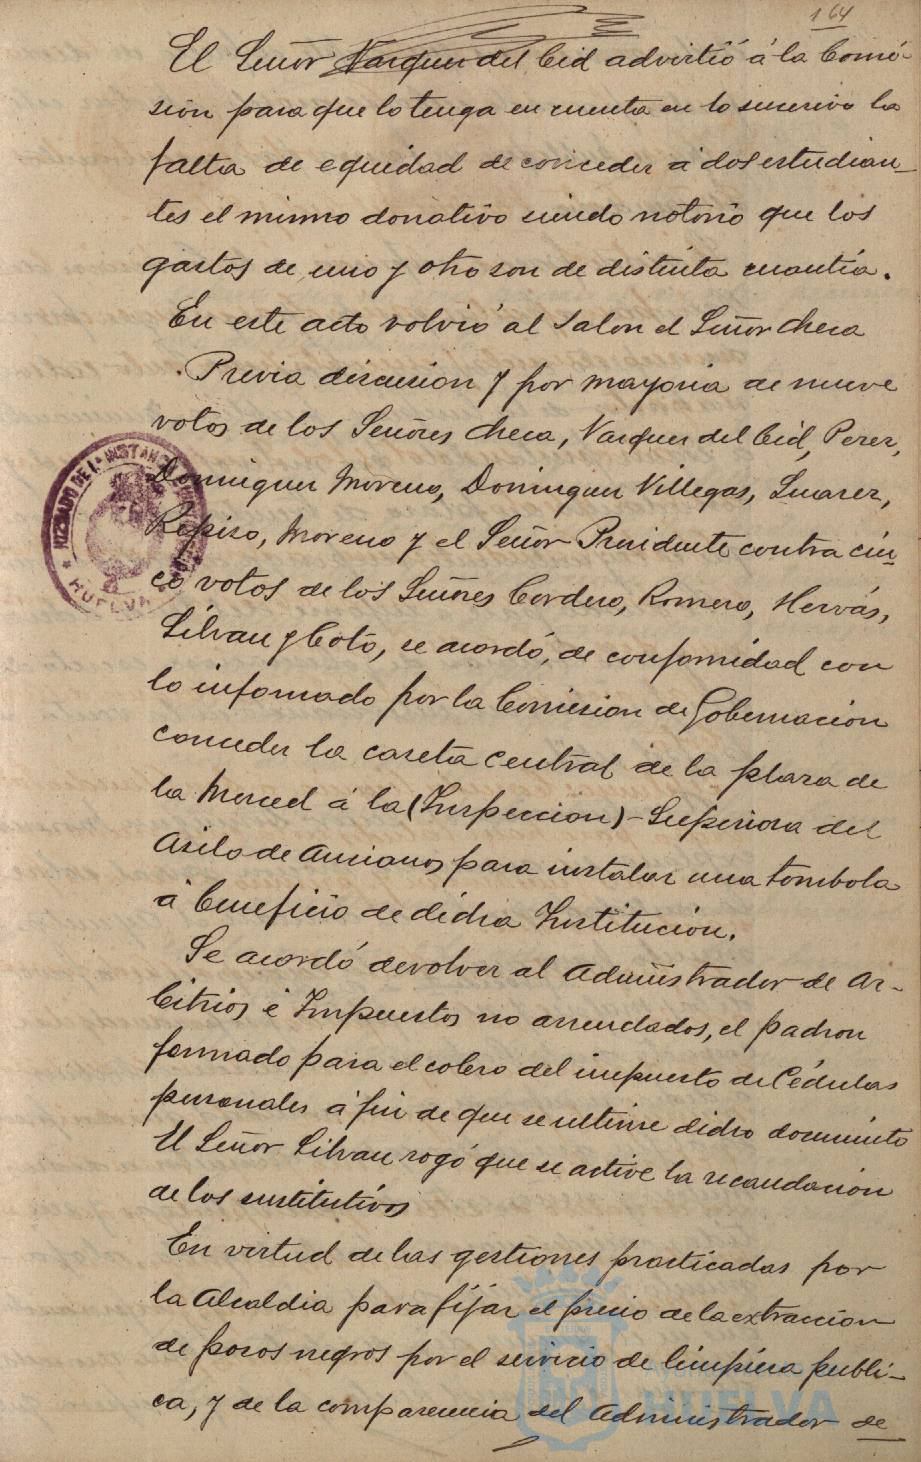 164
El Señor Vazquez del Cid advirtió á la Comi-
sión para que lo tenga en cuenta en lo sucesivo la
falta de equidad de conceder á dos estudian-
tes el mismo donativo siendo notorio que los
gastos de uno y otro son de distinta cuantía.
En este acto volvió al Salon el Señor Checa
Previa discusion y por mayoria de nueve
votos de los Señores Checa, Vazquez del Cid, Perez,
Dominguez Moreno, Dominguez Villegas, Suarez,
Repiso, Moreno y el Señor Presidente contra cin-
co votos de los Señores Cordero, Romero, Hervás,
Silvan y Coto, se acordó, de conformidad con
lo informado por la Comision de Gobernacion
conceder la caseta central de la plaza de
la Merced á la (Inspeccion) - Superiora del
Asilo de Ancianos para instalar una tombola
á beneficio de dicha Institución.
Se acordó devolver al Administrador de Ar-
bitrios é Impuestos no arrendados, el padron
formado para el cobro del impuesto de Cédulas
personales á fin de que se ultime dicho documento
El Señor Silvan rogó que se active la recaudación
de los sustitutivos
En virtud de las gestiones practicadas por
la Alcaldia para fijar el precio de la extracción
de pozos negros por el servicio de limpieza publi-
ca, y de la comparencia del Administrador de
JUZGADO DE 1ª INSTANCIA
HUELVA
HUELVA